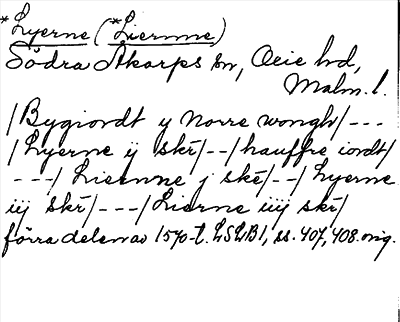 *Lyerne (*Liernne)
Södra Åkarps sn, Oxie hd,
Malm. l.
/Bygiordt y Norre wongh/---
/Lyerne ij skr/--/hauffre iordt/
---/Liernne j skr/--/Lyerne
iij skr/---/Lierne iiij skr/
förra delen av 1570-t. LSLB1, ss. 407, 408. orig.